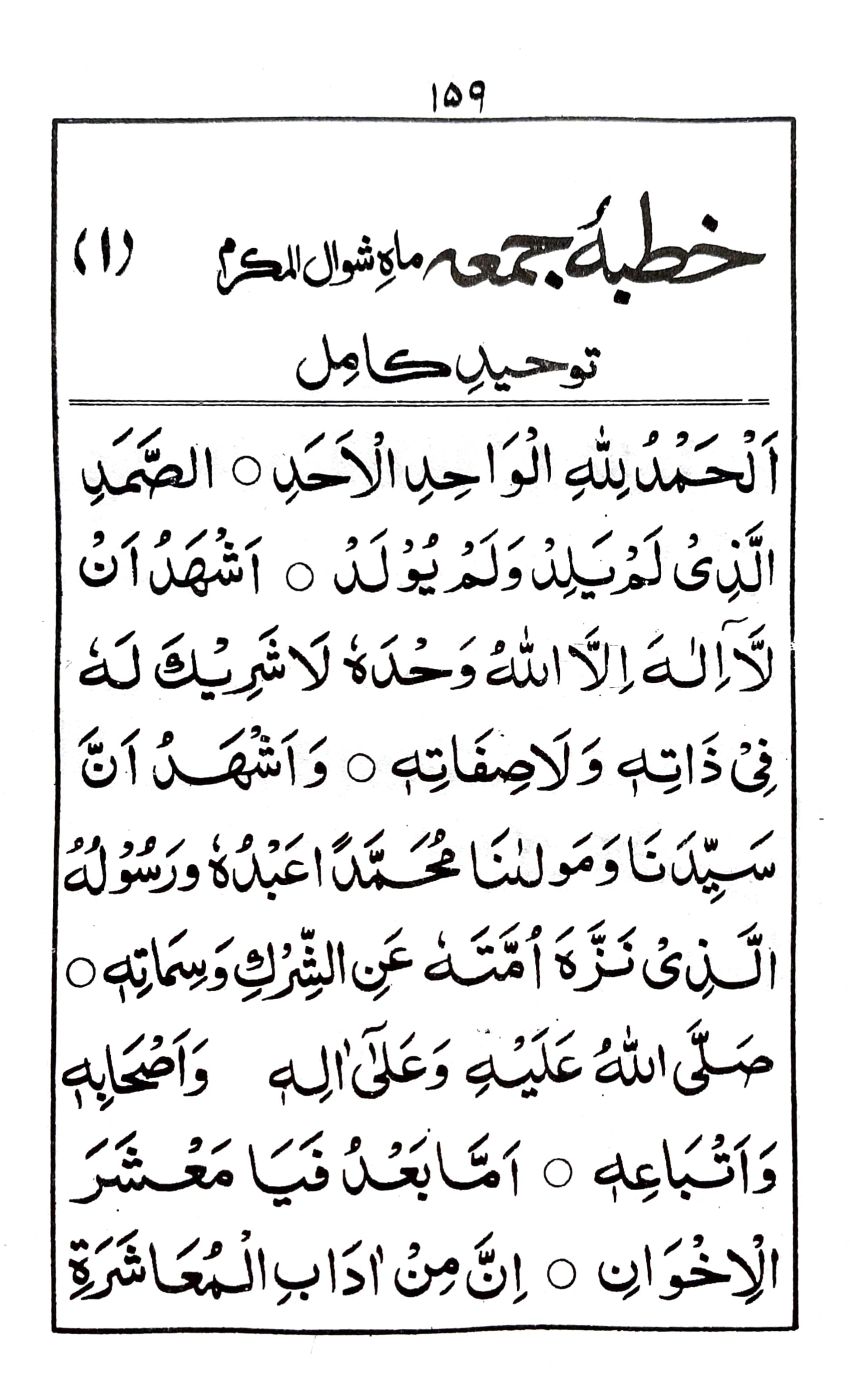 ۱۵۹
خطبۂ جمعہ ماہِ شوال المکرم (۱)
توحیدِ کامِل
اَلْحَمْدُ لِلّٰهِ الْوَاحِدِ الْاَحَدِ ○ الصَّمَدِ
الَّذِیْ لَمْ یَلِدْ وَلَمْ یُوْلَدْ ○ اَشْهَدُ اَنْ
لَّاۤ اِلٰهَ اِلَّا اللّٰهُ وَحْدَهٗ لَا شَرِیْكَ لَهٗ
فِیْ ذَاتِهٖ وَلَا صِفَاتِهٖ ○ وَاَشْهَدُ اَنَّ
سَیِّدَنَا وَمَولٰىنَا مُحَمَّدًا عَبْدُهٗ ورَسُوْلُهُ
الَّذِیْ نَزَّهَ اُمَّتَهٗ عَنِ الشِّرْكِ وَسِمَاتِهٖ ○
صَلَّی اللّٰهُ عَلَیْهِ وَعَلٰۤی اٰلِهٖ وَاَصْحَابِهٖ
وَاَتْبَاعِهٖ ○ اَمَّا بَعْدُ فَیَا مَعْشَرَ
الْاِخْوَانِ ○ اِنَّ مِنْ اٰدَابِ الْمُعَاشَرَةِ